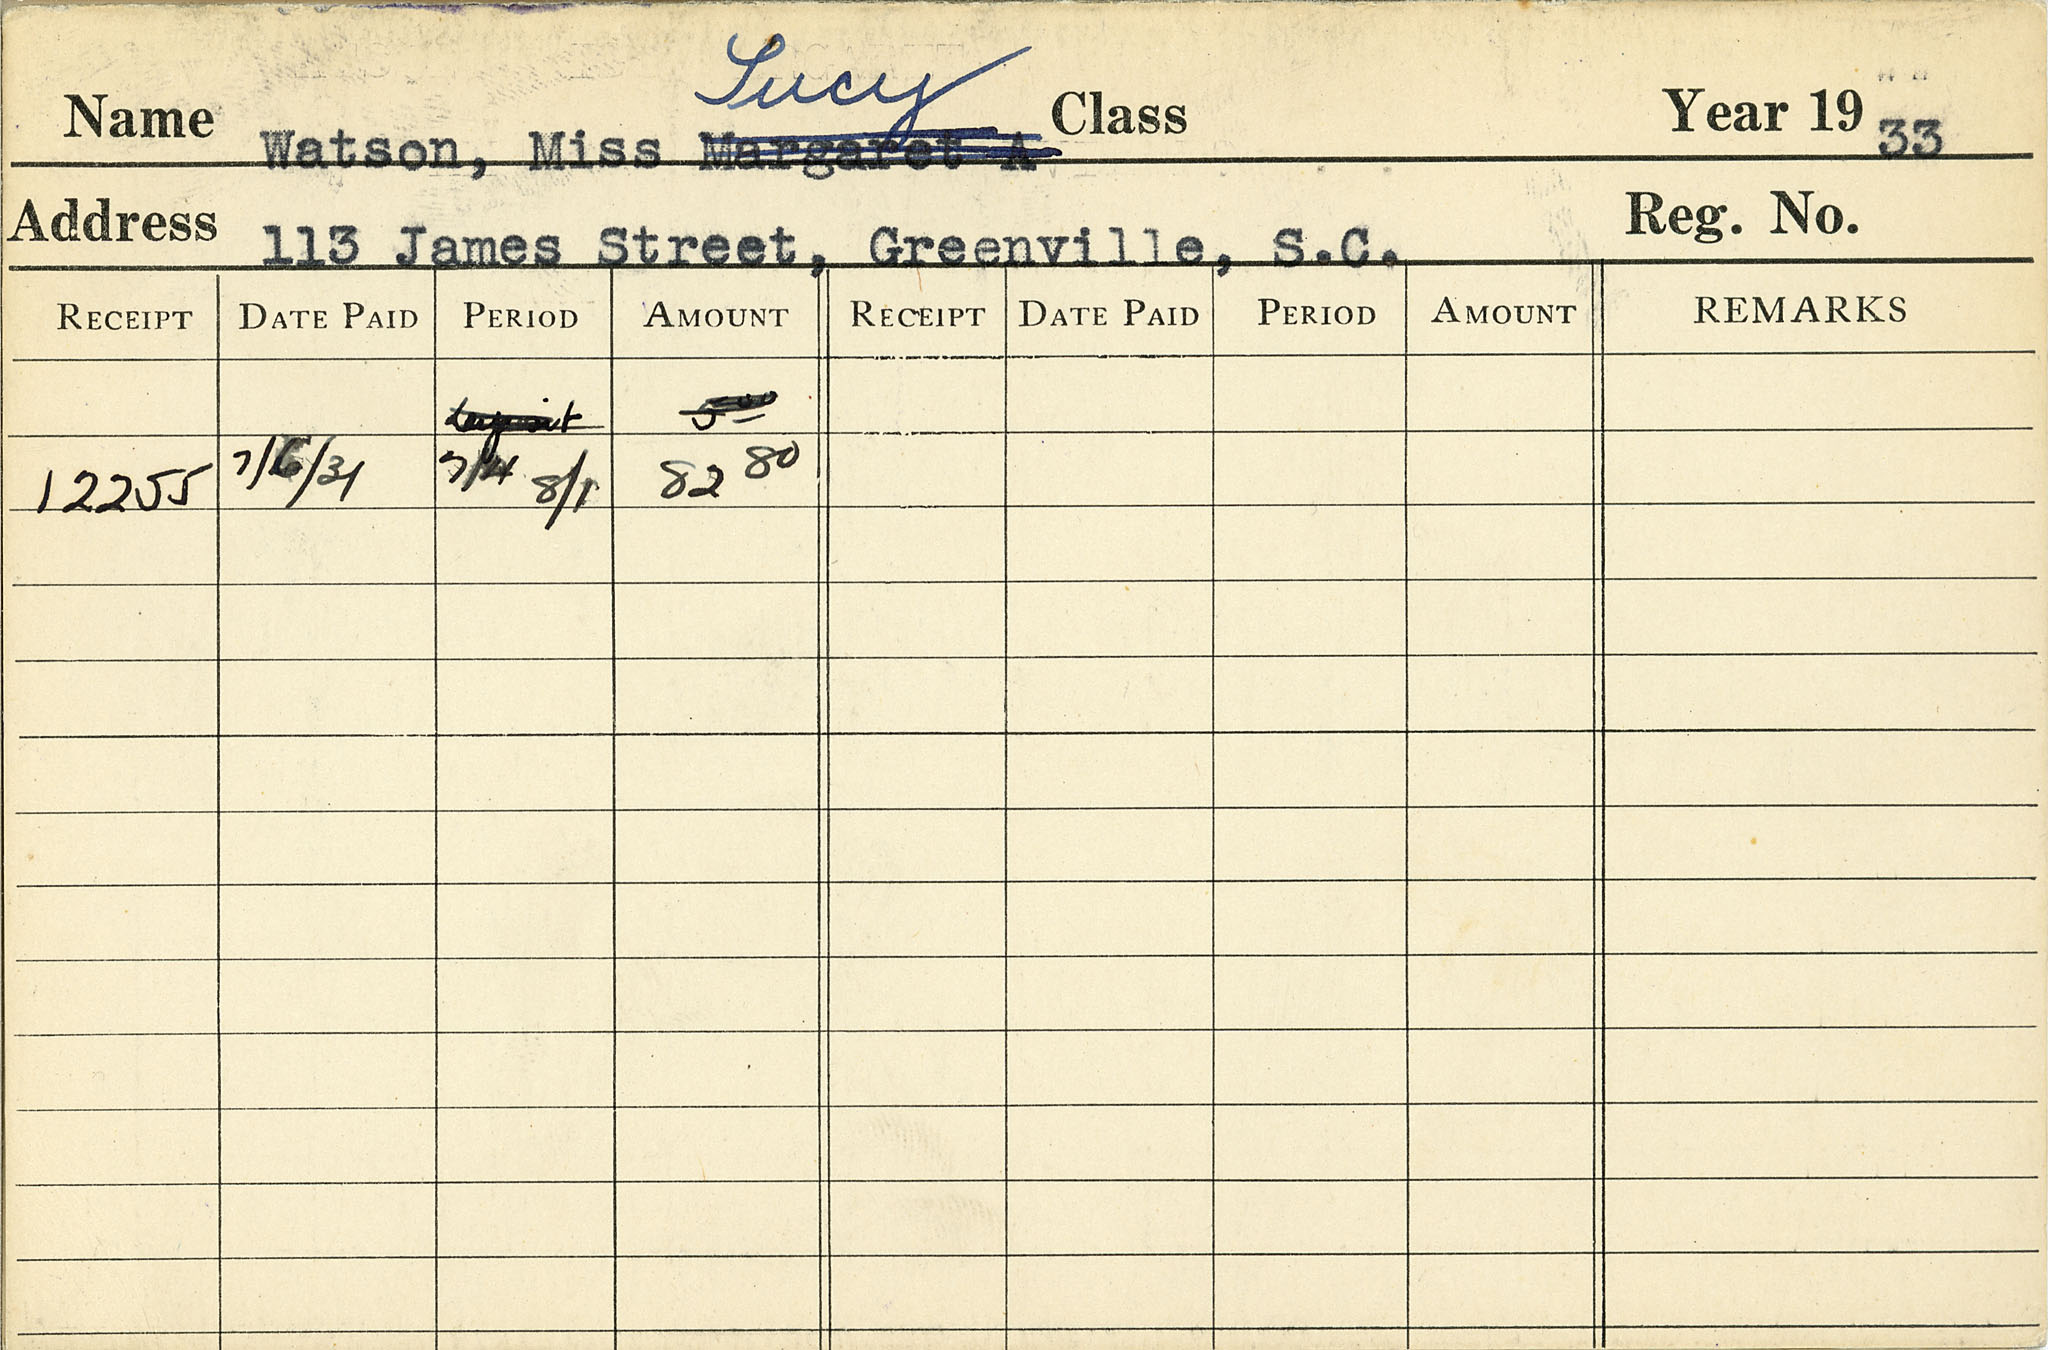 Lucy
Name Watson, Miss Margaret A Class Year 19 33
Address 113 James Street, Greenville, S.C. Reg. No.
RECEIPT DATE PAID PERIOD AMOUNT RECEIPT DATE PAID PERIOD AMOUNT REMARKS
Deposit 5 00
12255 7/6/31 7/4 8/1 82 80